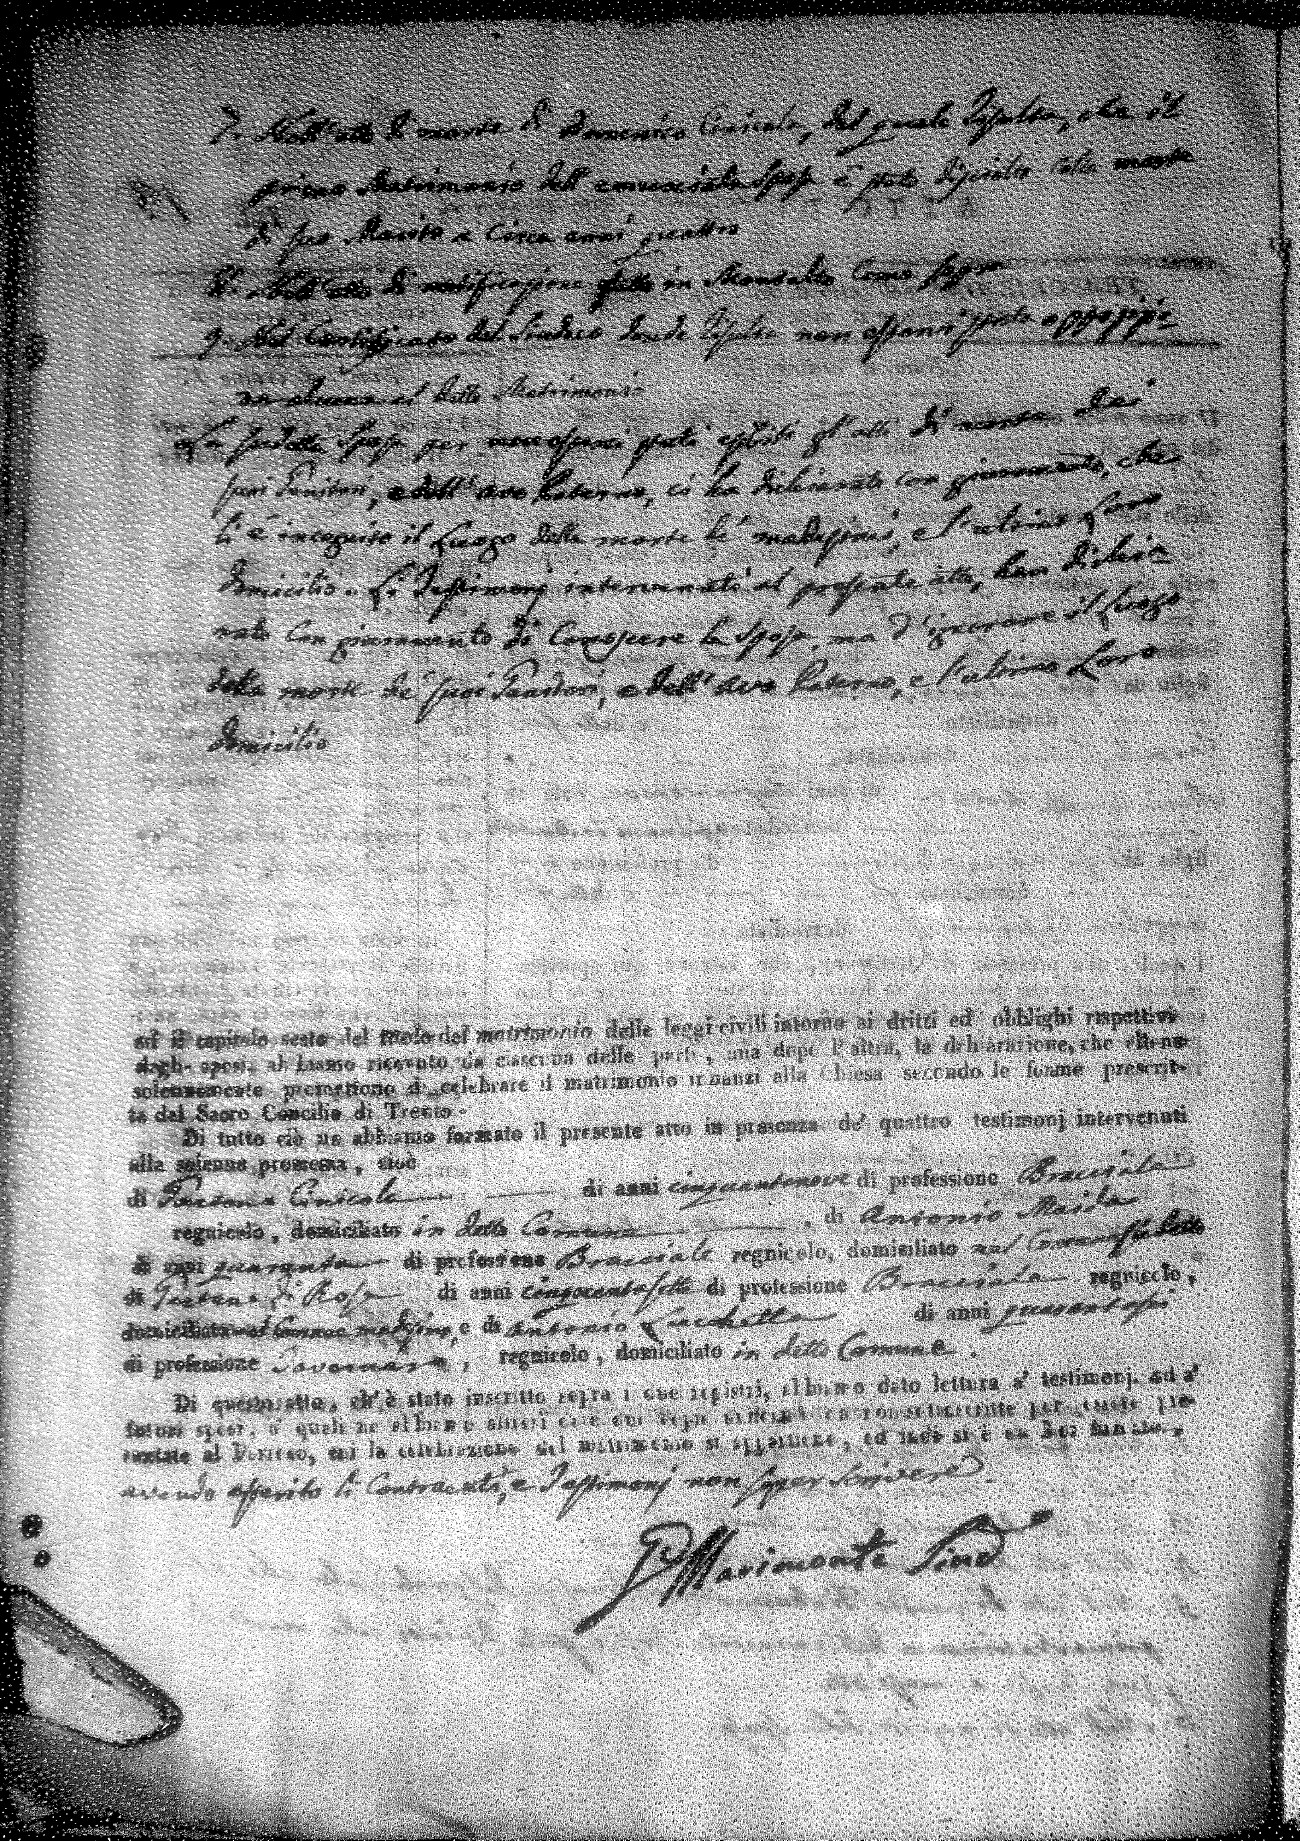 7. Nell'atto di morte di Domenico Cinicola, del quale risulta, che il
primo Matrimonio dell'enunciata Sposa è stato disciolto colla morte
di suo Marito a circa anni quattro
8. Nell'atto di notificazione fatta in Montalto Come sopra
9. Nel Certificato del Sindaco donde risulta non esservi stata opposizio-
ne alcuna al detto Matrimonio
La sudetta Sposa per non essersi potuti esibire gl'atti di morte dei
suoi Genitori, e dell'avo Paterno, ci ha dichiarato con giuramento, che
li è incognito il Luogo della morte de' medesimi, e l'ultimo Loro
domicilio. Li Testimonj intervenuti al presente atto, han dichia-
rato con giuramento di Conoscere la Sposa, ma d'ignorare il luogo
della morte de' suoi Genitori, e dell'avo Paterno, e l'ultimo Loro
domicilio
ed il capitolo sesto del titolo del matrimonio delle leggi civili intorno ai dritti ed obblighi rispettivi
degli sposi, abbiamo ricevuto da ciascuna delle parti, una dopo l'altra, la dichiarazione, che elleno
solennemente promettono di celebrare il matrimonio innanzi alla Chiesa secondo le forme prescrit-
te dal Sacro Concilio di Trento.
Di tutto ciò ne abbiamo formato il presente atto in presenza de' quattro testimonj intervenuti
alla solenne promessa, cioè
di Cinicola di anni cinquantanove di professione Bracciale
regnicolo, domiciliato in detto Comune, di Antonio Maida
di anni quaranta di professione Bracciale regnicolo, domiciliato nel Comune suddetto
di Gaetano di Rosa di anni cinquantasette di professione Bracciale regnicolo,
domiciliato nel Comune medesimo, e di Antonio Lucchetta di anni quarantasei
di professione Tavernaro, regnicolo, domiciliato in detto Comune.
Di quest'atto, ch'è stato inscritto sopra i due registri, abbiamo dato lettura a' testimonj, ed a'
futuri sposi, a' quali ne abbiamo altresì date due copie uniformi da noi sottoscritte per essere pre-
sentate al Parroco, cui la celebrazione del matrimonio si appartiene, ed indi si è da Noi firmato,
avendo asserito li Contraenti, e Testimonj non saper Scrivere.
Marimonte Sind